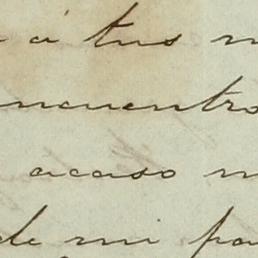 á tus
ncuentro
acaso
de mi pa